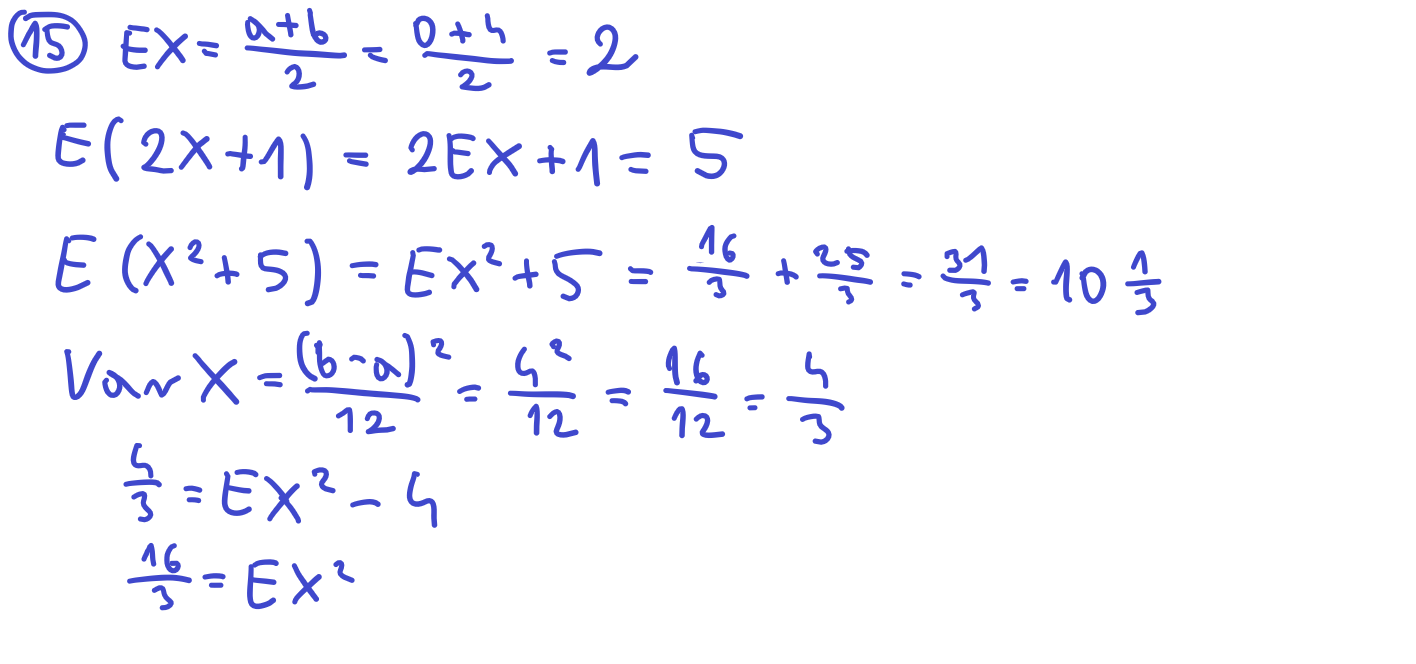 15 EX = (a+b)/2 = (0+4)/2 = 2
E(2X+1) = 2EX+1 = 5
E(X²+5) = EX²+5 = 16/3 + 25/3 = 31/3 = 10 1/3
Var X = (b-a)²/12 = 4²/12 = 16/12 = 4/3
4/3 = EX² - 4
16/3 = EX²